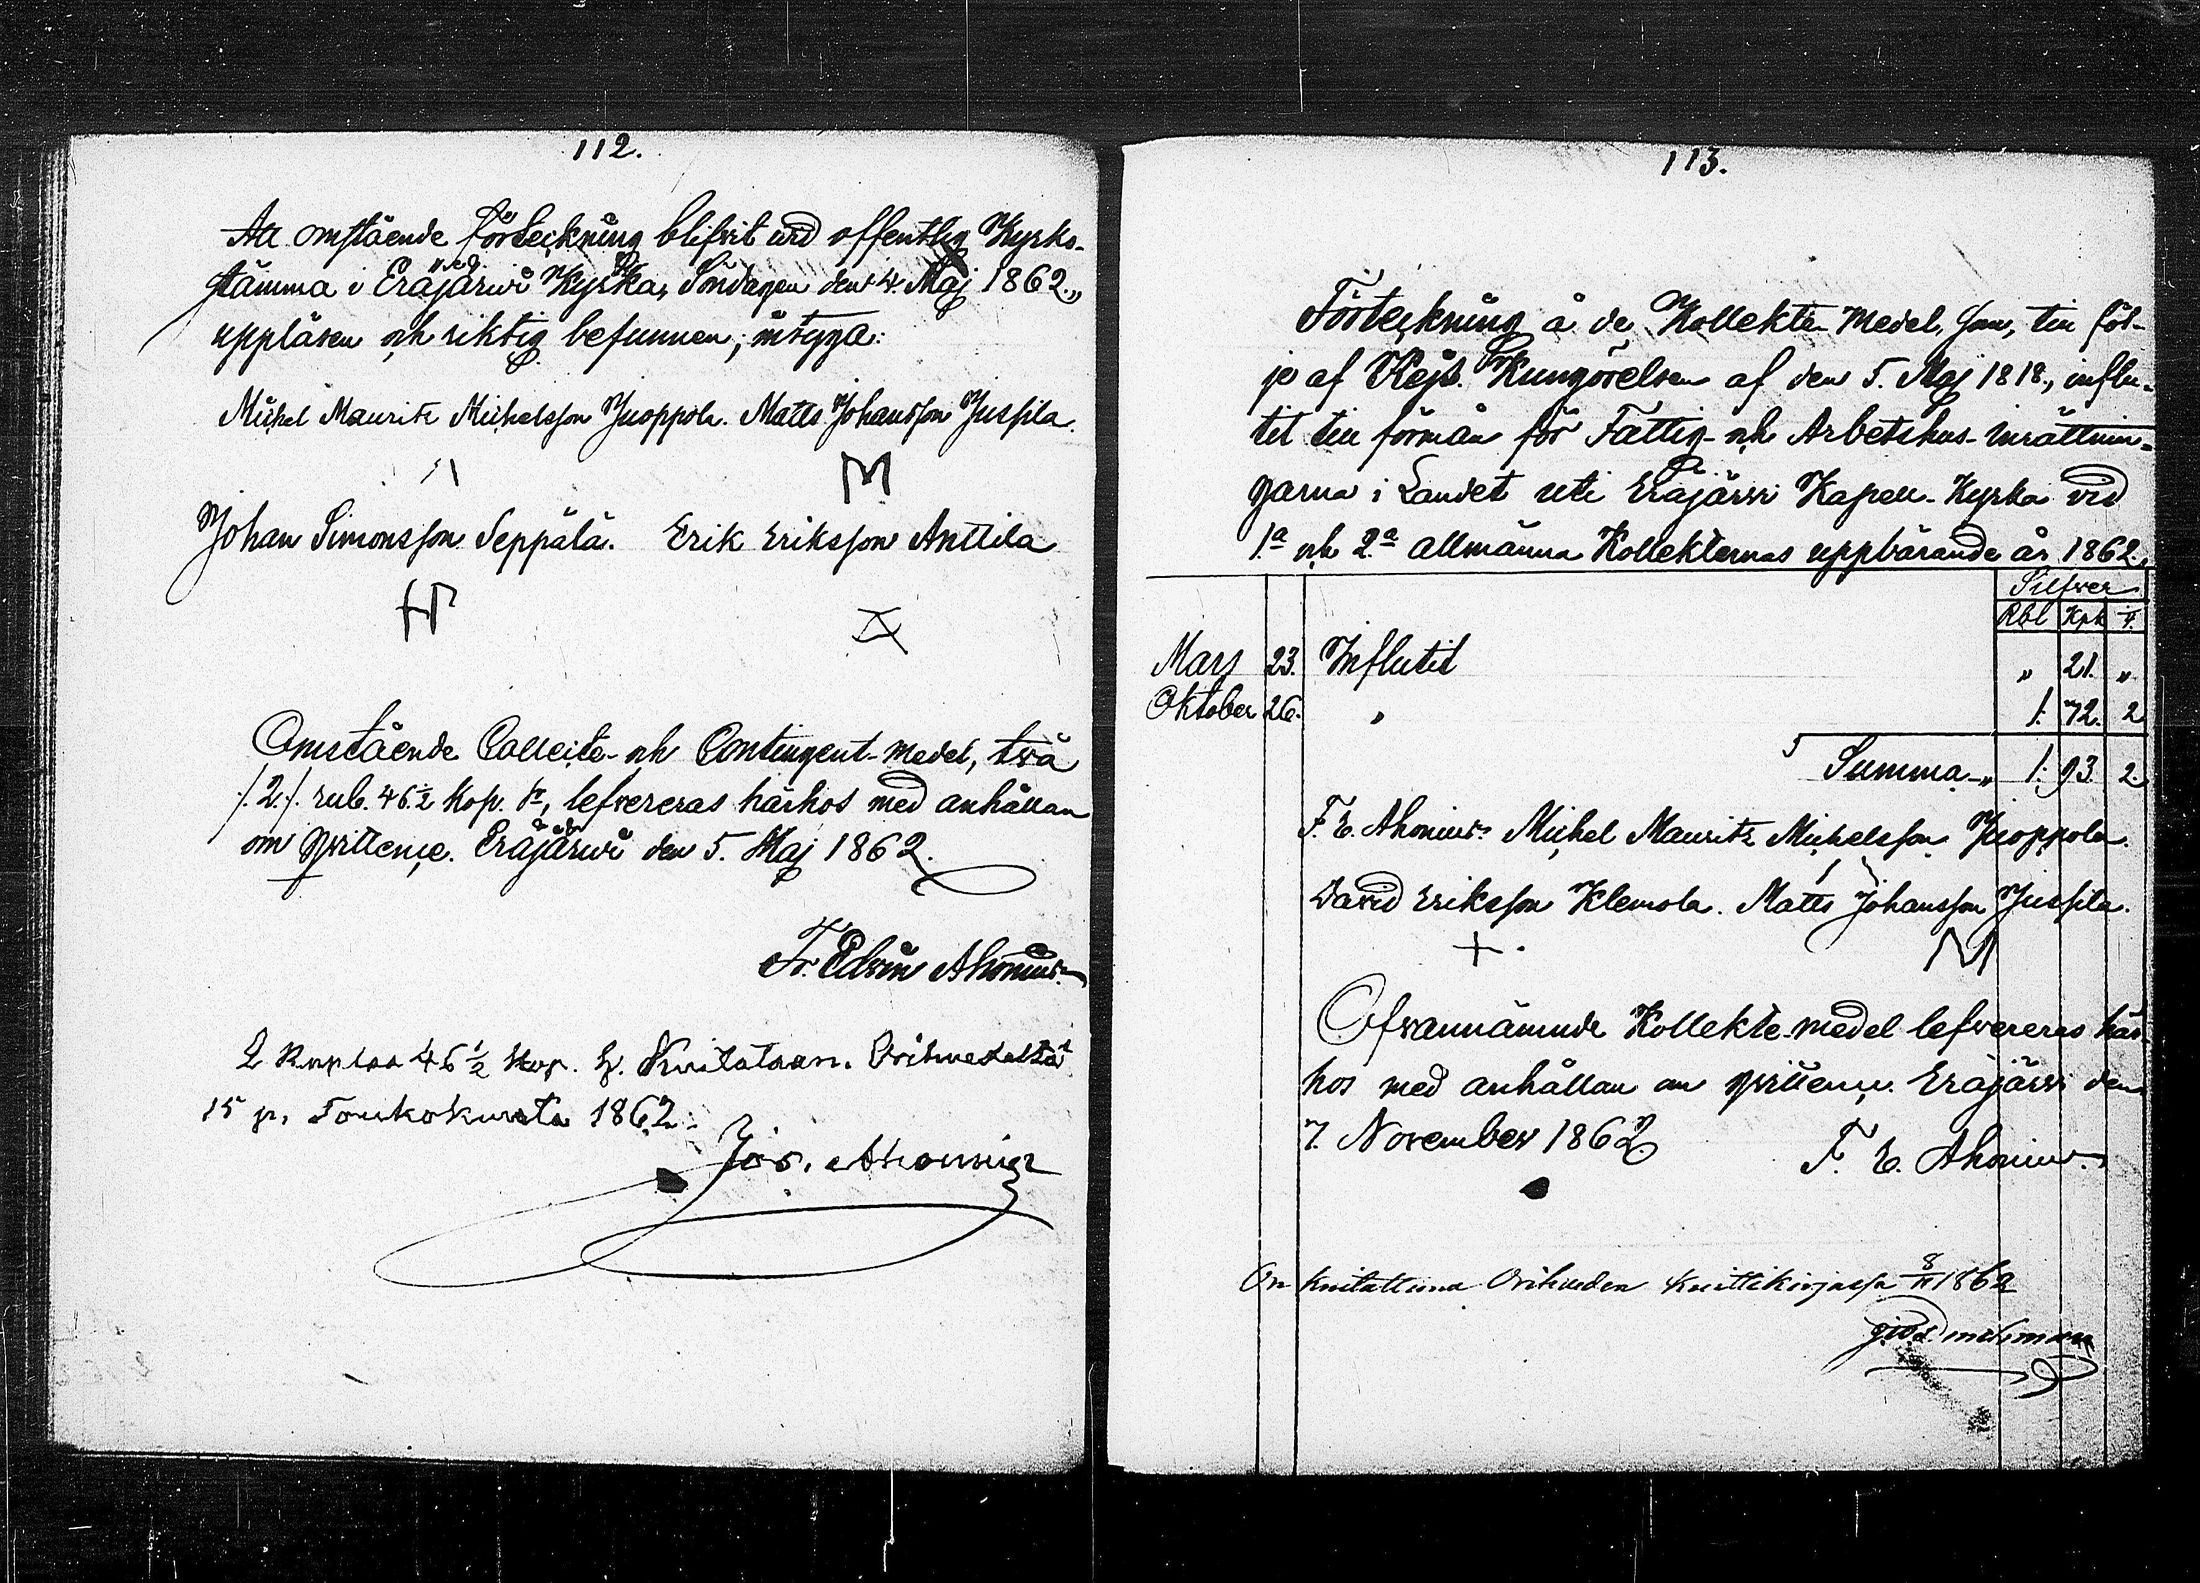 112.
Att omstående förteckning blifvit vid offentlig Kyrko-
stämma i Eräjärwi Kyrka, Söndagen den 4. Maj 1862.,
uppläsen och riktig befunnen, intyga:
Michel Mauritz Michelsson Juoppola. Matts Johansson Jussila.
M
Johan Simonsson Seppälä. Erik Eriksson Anttila
Omstående Collecte- och Contingent-medel, två
/.2./. rub. 46½ Kop. Sr, lefvereras härhos med anhållan
om qvittence. Eräjärwi den 5. Maj 1862.
Fr. Edvin Ahonius.
2 Ruplaa 46 ½ Kop. h. Kuitataan. Orihvedeltä
15 p. Toukokuuta 1862.
Jos. Ahonius
113.
Förteckning å de Kollekte-Medel, som, till föl-
je af Kejs. Kungörelsen af den 5. Maj 1818., influ-
tit till förmån för Fattig- och Arbetshus-inrättnin-
garna i Landet uti Eräjärvi Kapell-Kyrka vid
1a och 2a allmänna Kollekternas uppbärande år 1862.
Silfver
Rbl Kpk ¼.
Mars 23. Influtit " 21. "
Oktober 26. " 1. 72. 2
Summa " 1. 93. 2.
F. E. Ahonius. Michel Mauritz Michelsson Juoppola.
David Eriksson Klemola. Matts Johansson Jussila.
+ M
Ofvannämnde Kollekte-medel lefvereras här-
hos med anhållan om qvittence. Eräjärvi den
7. November 1862.
F. E. Ahonius.
On kuitattuna Orihveden kuittikirjassa 8/11 1862